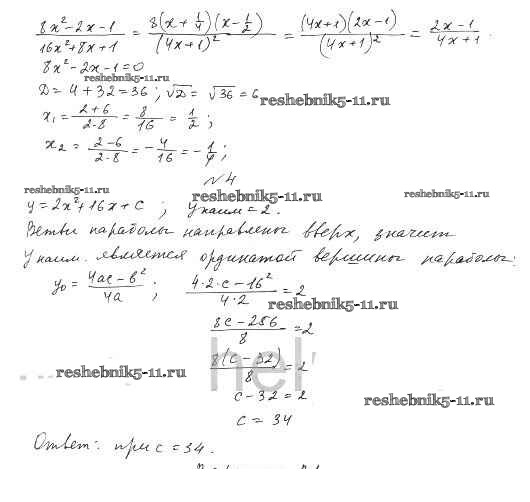 (8x²-2x-1)/(16x²+8x+1) = 8(x+1/4)(x-1/2)/(4x+1)² = (4x+1)(2x-1)/(4x+1)² = (2x-1)/(4x+1).
8x²-2x-1=0
reshebnik5-11.ru
D=4+32=36; √D = √36 = 6 reshebnik5-11.ru
x₁ = (2+6)/(2·8) = 8/16 = 1/2;
x₂ = (2-6)/(2·8) = -4/16 = -1/4;
№4
reshebnik5-11.ru reshebnik5-11.ru reshebnik5-11.ru
y=2x²+16x+c; y наим = 2.
Ветви параболы направлены вверх, значит
y наим. является ординатой вершины параболы:
y₀ = (4ac-b²)/4a; (4·2·c-16²)/(4·2) = 2
reshebnik5-11.ru
(8c-256)/8 = 2
8(c-32)/8 = 2
hel
reshebnik5-11.ru
c-32=2
reshebnik5-11.ru
c = 34
Ответ: при c=34.